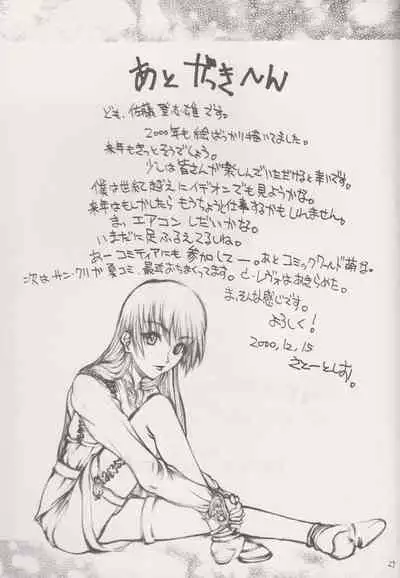 あとがっき〜ん
ども、佐藤登志雄です。
2000年も絵ばっかり描いてました。
来年もきっとそうでしょう。
少しは皆さんが楽しんでいただけると幸いです。
僕は世紀越えにイデオンでも見ようかな。
来年はもしかしたらもうちょっと仕事するかもしれません。
ま、エアコンしだいかな。
いまだに足ふるえてるしね。
あーコミティアにも参加してー。あとコミックワールド萌な。
次はサン・クリか夏コミ、最近おちまくってます。と・レヴォはあきらめた。
ま、そんな感じです。
よろしく!
2000,12,15
さとーとしお。
27